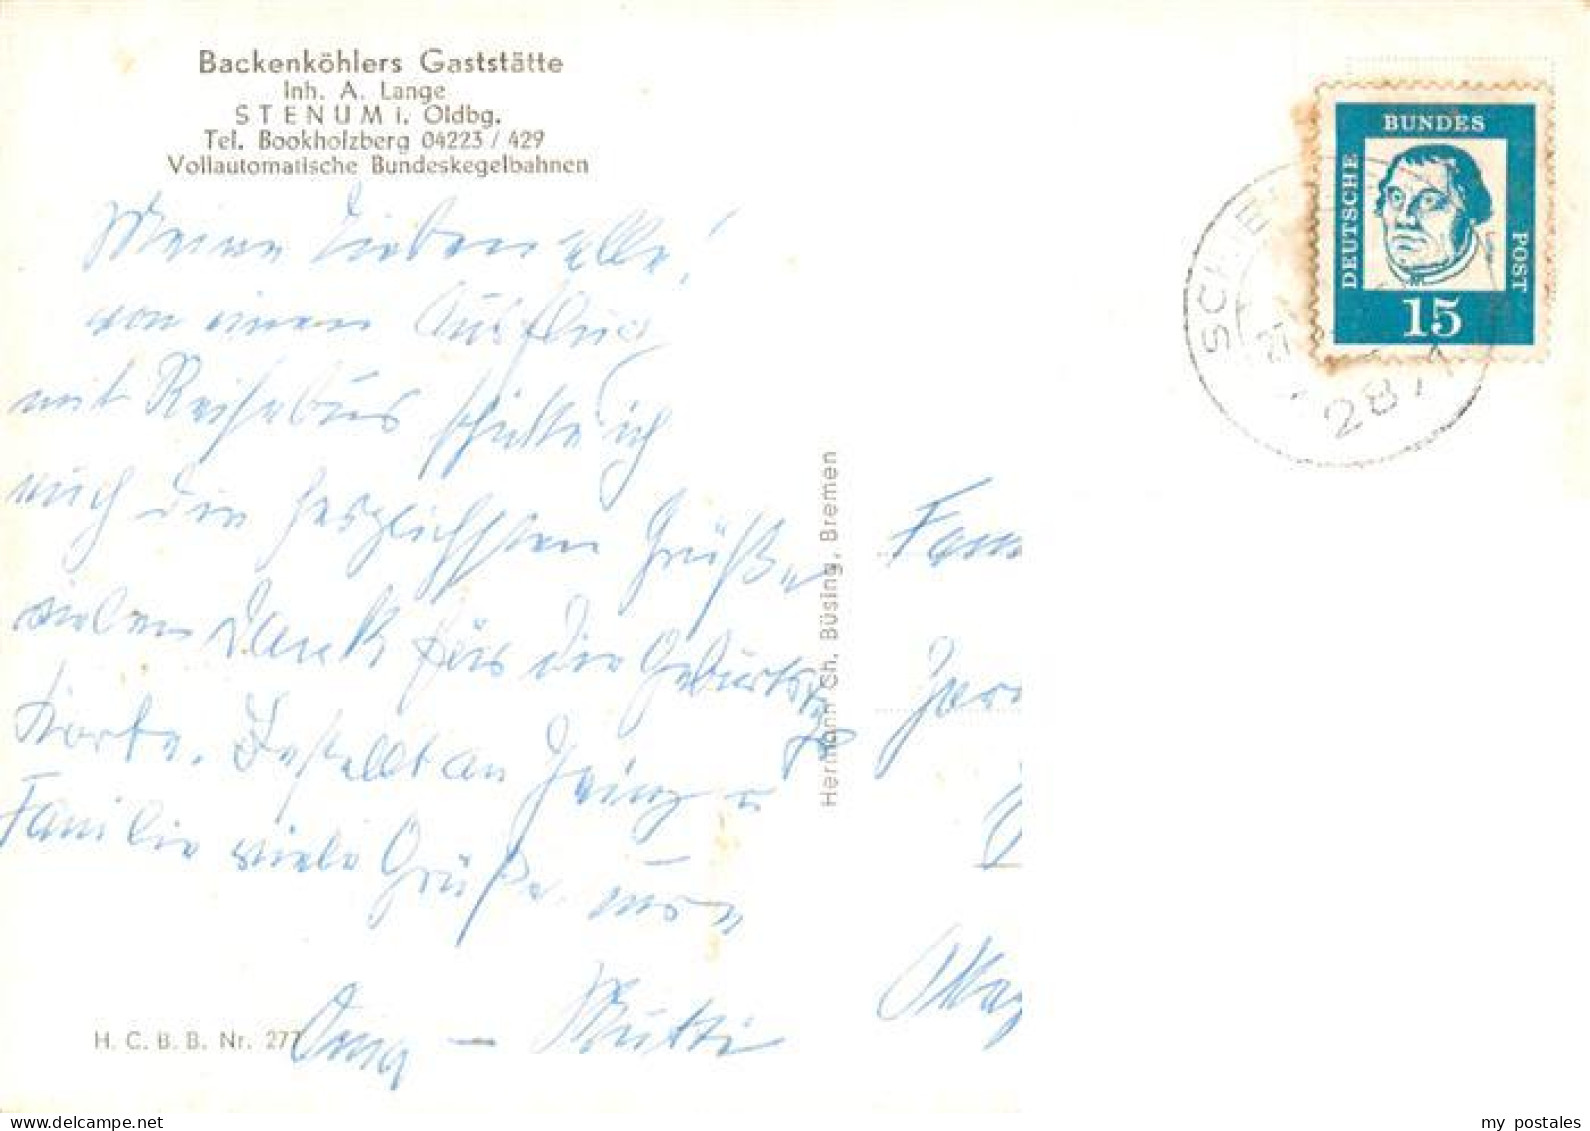 Backenköhlers Gaststätte
Inh. A. Lange
STENUM i. Oldbg.
Tel. Bookholzberg 04223 / 429
Vollautomatische Bundeskegelbahnen
Meine Lieben alle!
von einem Ausflug
mit Reisebus schickte ich
euch die herzlichsten Grüße
vielen Dank für die Geburtstags
karte. Bestellt an Heinz u
Familie viele Grüße
Oma - Mutti
H. C. B. B. Nr. 277
Hermann Ch. Büsing, Bremen
Fam
DEUTSCHE
BUNDES
POST
15
my postales